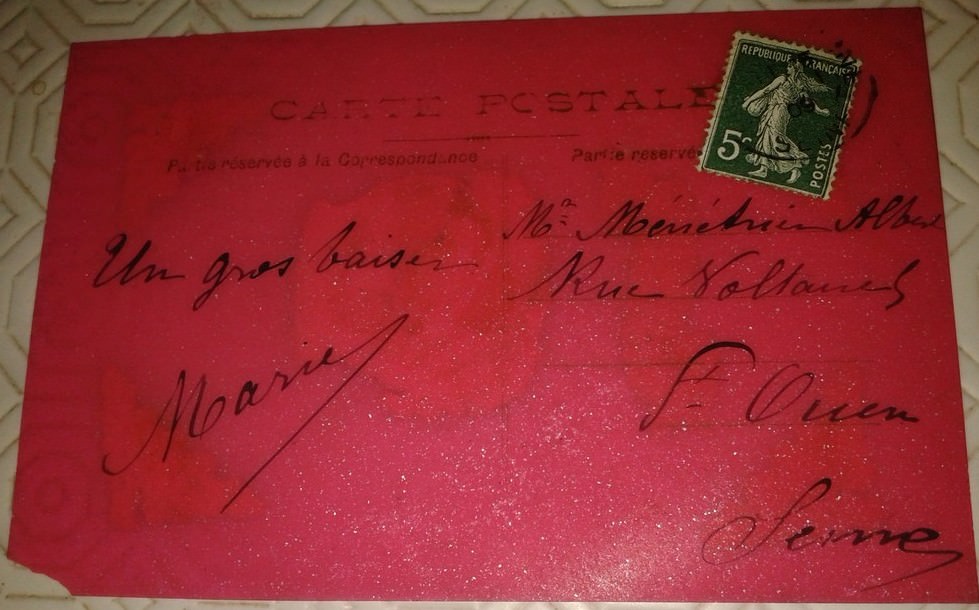 RÉPUBLIQUE FRANÇAISE
5c
POSTES
CARTE POSTALE
Partie réservée à la Correspondance
Partie reservé
Un gros baiser
Marie
Mr Ménétrier Albert
Rue Voltaire
St Ouen
Seine